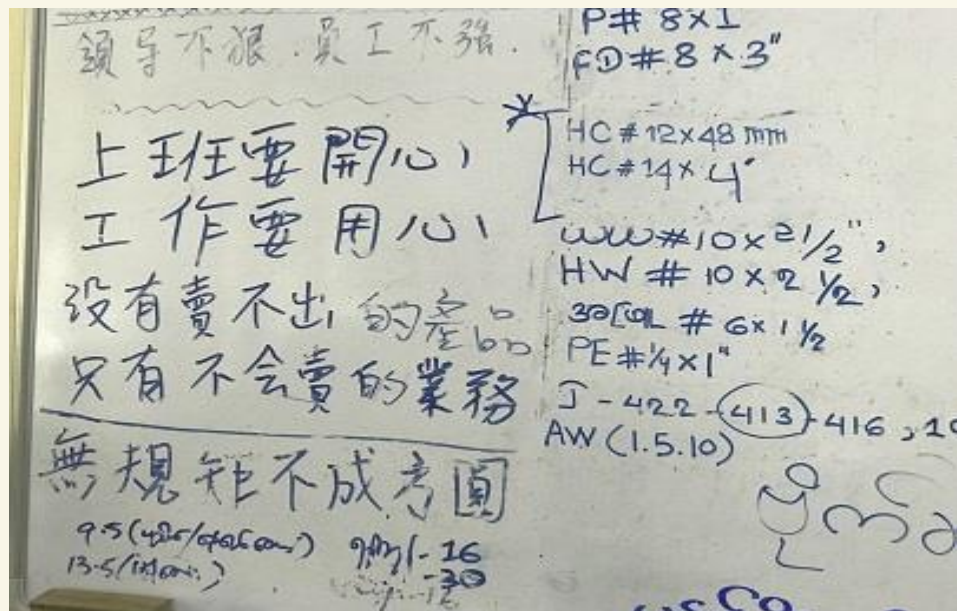 領导不狠.員工不強.
上班要開心
工作要用心
没有賣不出的產品
只有不会賣的業務
無規矩不成方圓
9.5
13.5
-16
-30
P# 8×1
FD# 8×3"
HC#12×48 mm
HC#14×4"
WW#10×2 1/2",
HW # 10×2 1/2,
# 6×1 1/2
PE#1/4×1"
J-422-413-416,
AW (1.5.10)